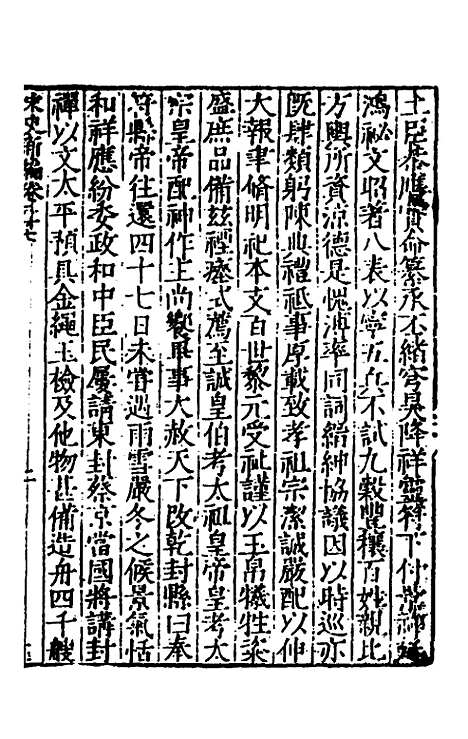 臣恭膺寶命纂承丕緒穹昊降祥靈符下付景
鴻祕文昭著八表以寧五兵不試九穀豐穰百姓親比
方輿所資涼德是愧溥率同詞縉紳協議因以時巡亦
既肆類躬陳典禮祗事厚載致孝祖宗潔誠嚴配以伸
大報聿脩明祀本支百世黎元受祉謹以玉帛犧牲粢
盛庶品備茲禋瘞式薦至誠皇伯考太祖皇帝皇考太
宗皇帝配神作主尚饗畢事大赦天下改乾封縣曰奉
符縣帝往還四十七日未嘗遇雨雪嚴冬之候景氣恬
和祥應紛委政和中臣民屢請東封蔡京當國將講封
禪以文太平預具金繩玉檢及他物甚備造舟四千艘
宋史新編卷十七